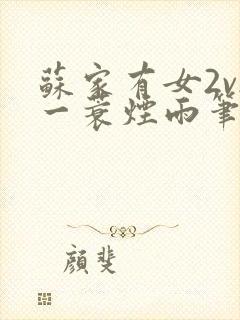 蘇家有女2v
一蓑煙雨筆
顏斐